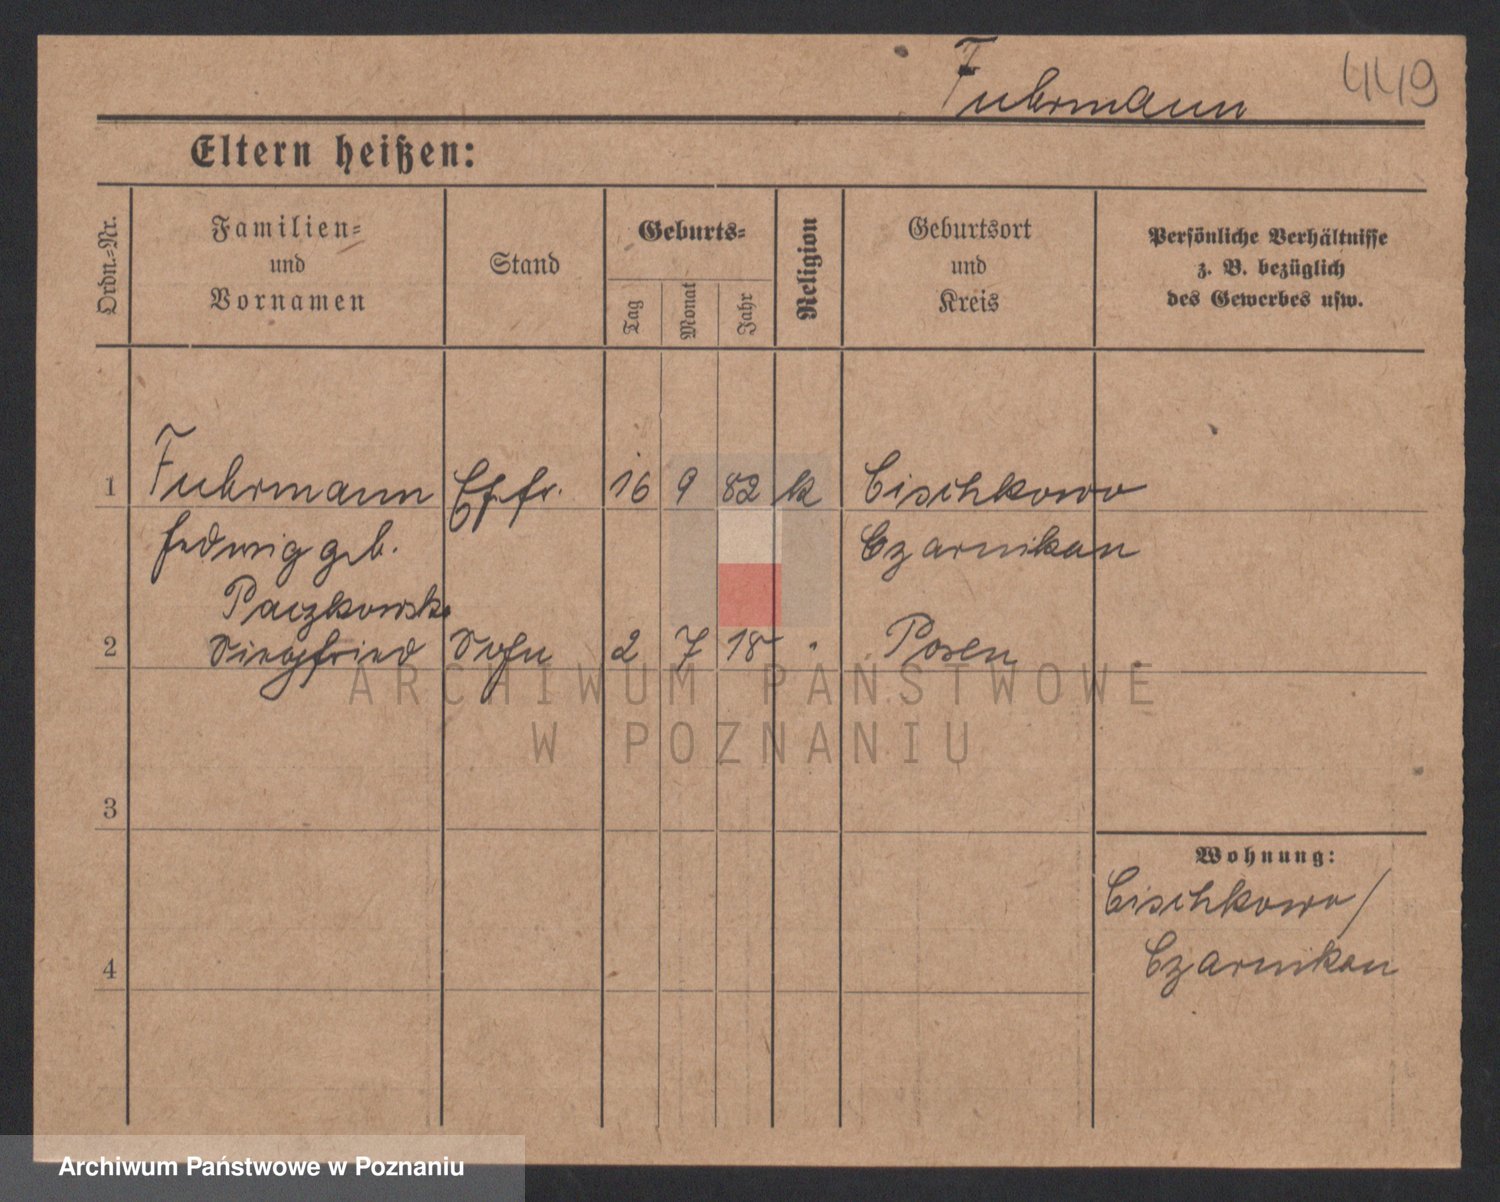 449
Fuhrmann
Eltern heißen:
Ordn.-Nr.
Familien- und Vornamen
Stand
Geburts-
Tag
Monat
Jahr
Religion
Geburtsort und Kreis
Persönliche Verhältnisse z. B. bezüglich des Gewerbes usw.
1 Fuhrmann Ehefr. 16 9 82 k Cischkowo
Hedwig geb. Czarnikau
Paczkowska
2 Siegfried Sohn 2 7 18 " Posen
ARCHIWUM PAŃSTWOWE
W POZNANIU
3
Wohnung:
Cischkowo/
Czarnikau
4
Archiwum Państwowe w Poznaniu